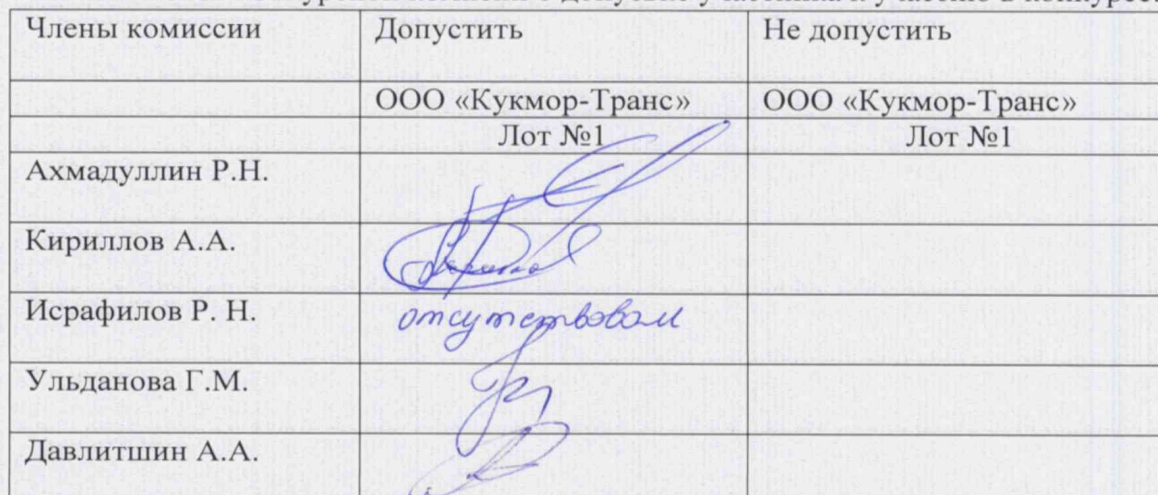 Члены комиссии Допустить Не допустить
ООО «Кукмор-Транс» ООО «Кукмор-Транс»
Лот №1 Лот №1
Ахмадуллин Р.Н.
Кириллов А.А.
Исрафилов Р. Н. отсутствовал
Ульданова Г.М.
Давлитшин А.А.